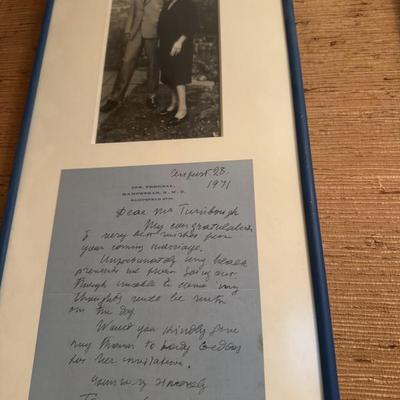 108, FROGNAL,
HAMPSTEAD, N.W.3.
August 28.
1971
Dear Mr
My congratulations
& very best wishes for
your coming marriage.
Unfortunately my health
prevents me from going out
though unable to come my
thoughts will be with
on the day.
Would you kindly give
my thanks to Lady Geddes
for her invitation.
Yours very sincerely